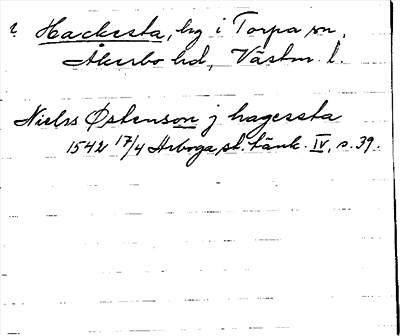 ? Hackesta, by i Torpa sn,
Åkerbo hd, Västm. l.
Nielss Østenson j hagessta
1542 17/4 Arboga st. tänk. IV, s. 39.